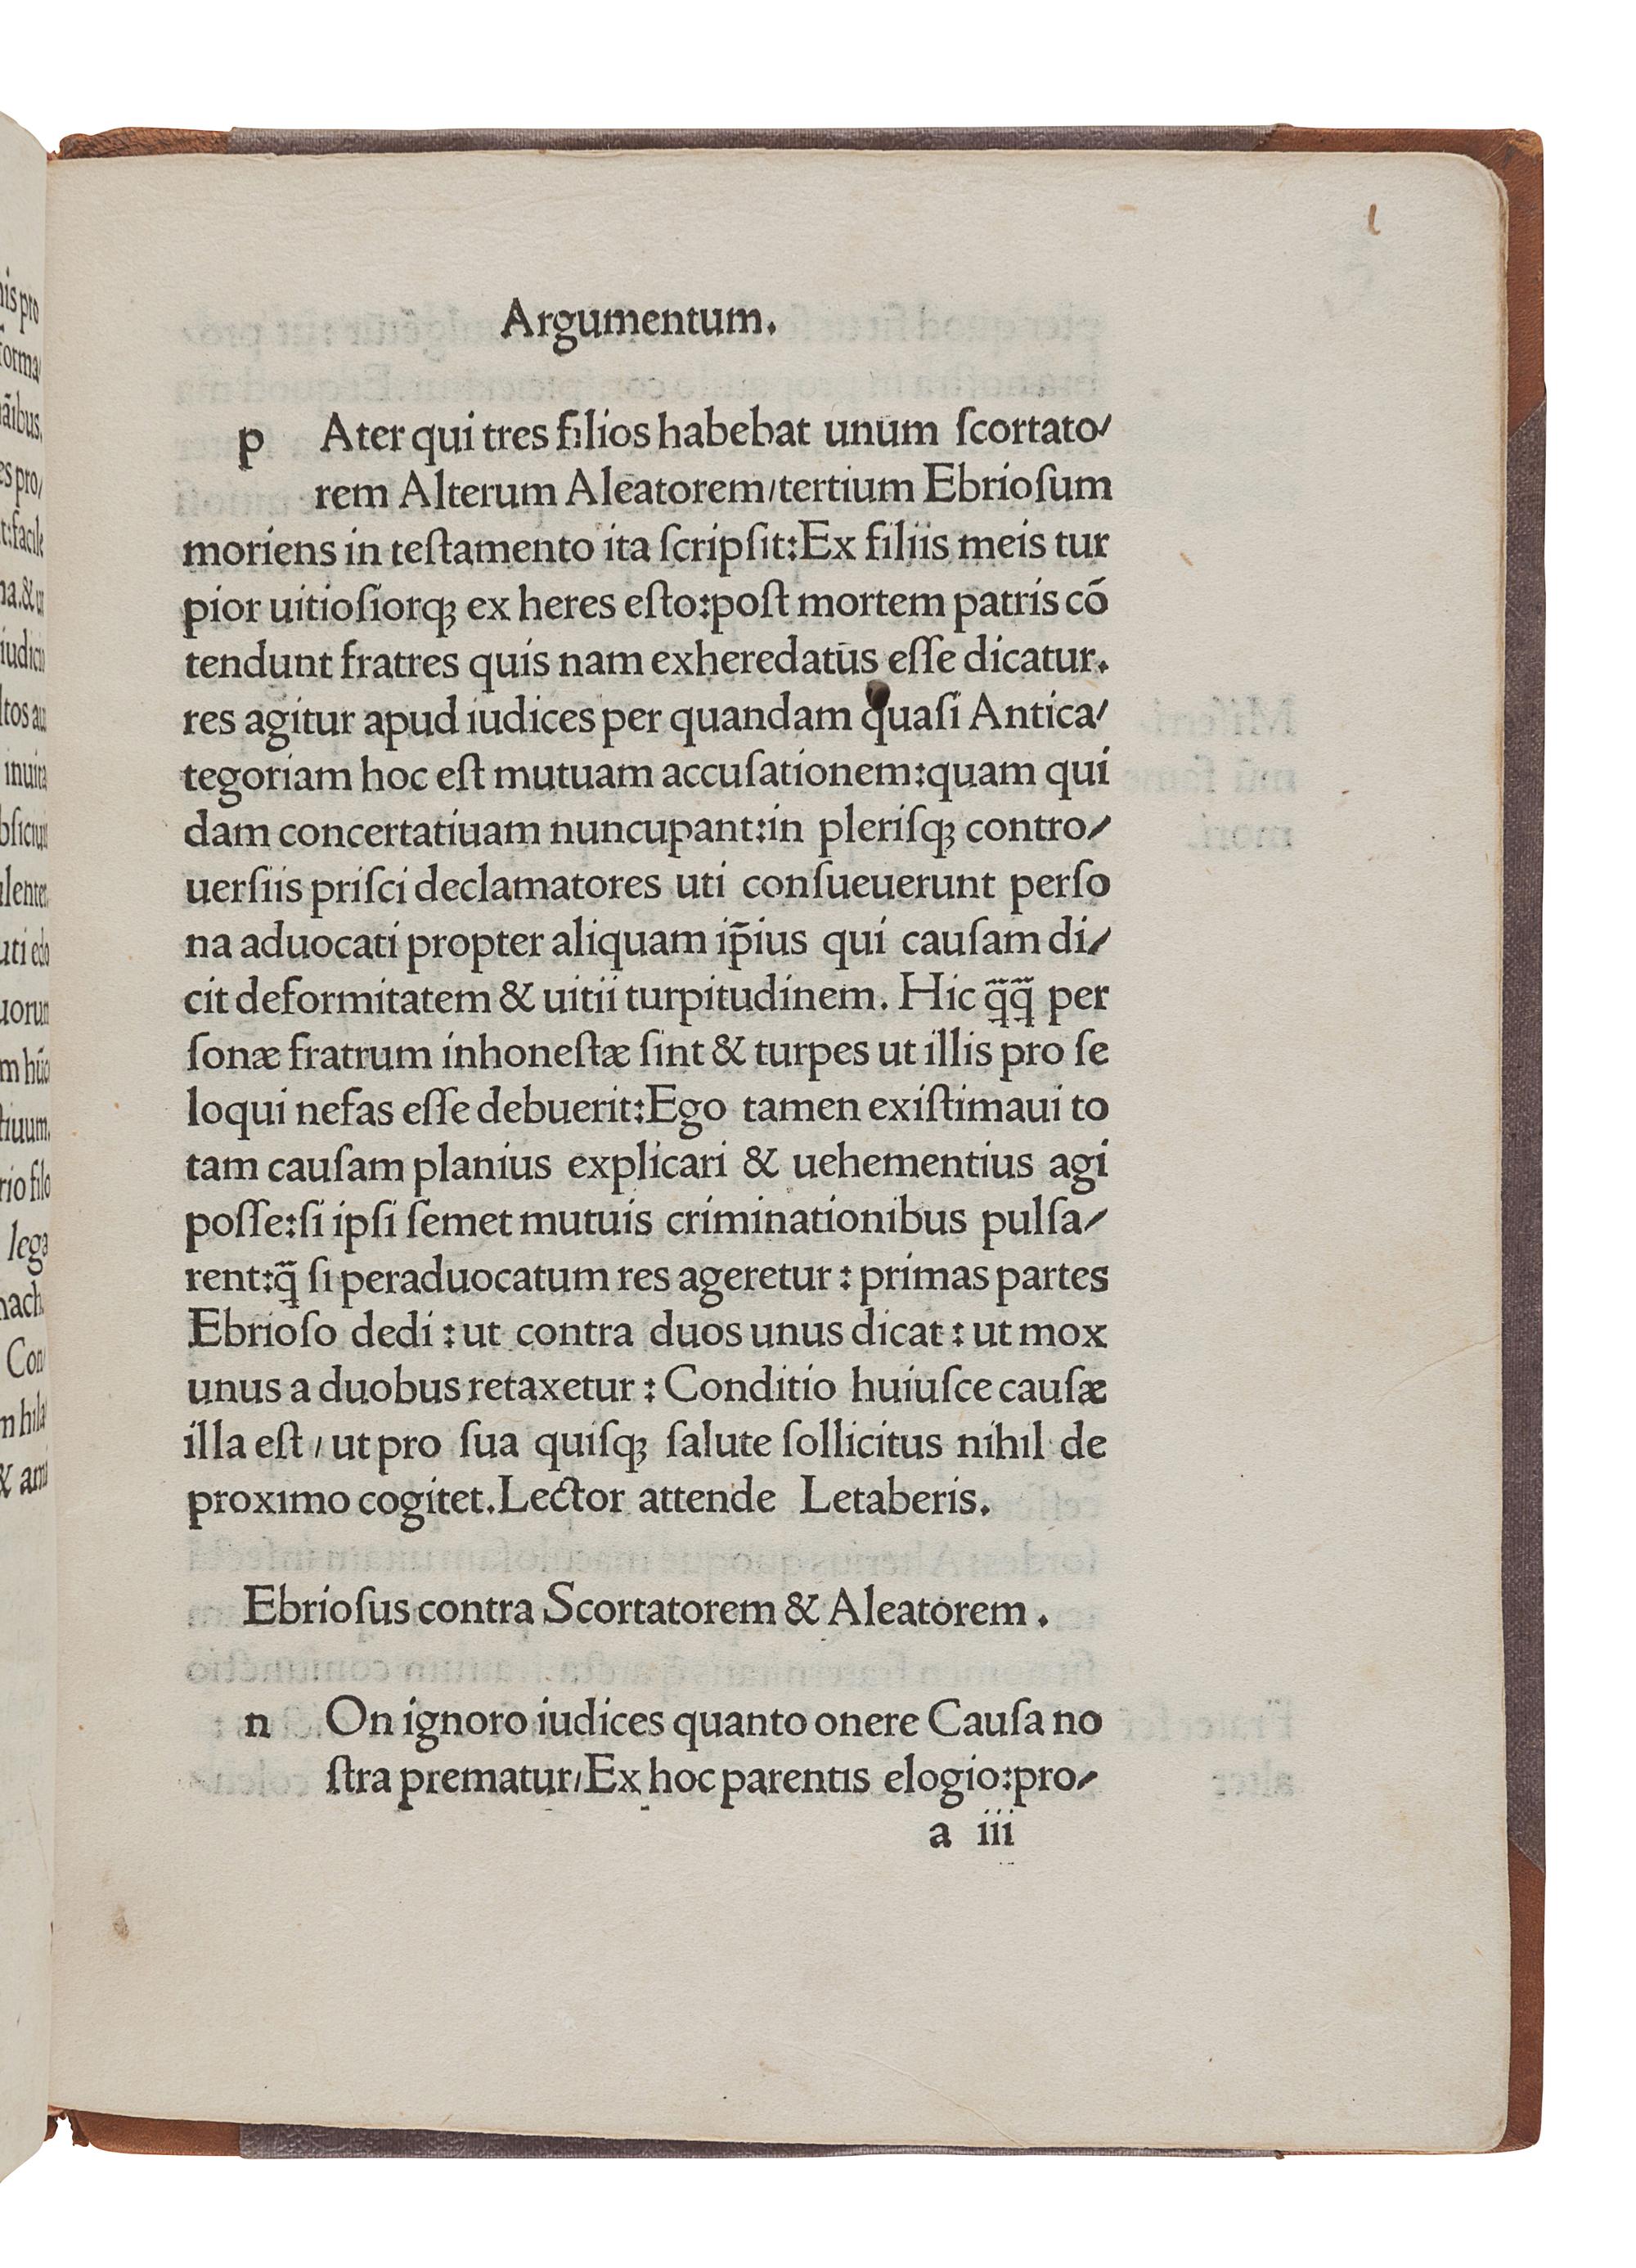 Argumentum.
p Ater qui tres filios habebat unum ſcortato/
rem Alterum Aleatorem/tertium Ebrioſum
moriens in teſtamento ita ſcripſit:Ex filiis meis tur
pior uitioſiorqꝫ ex heres eſto:poſt mortem patris cō
tendunt fratres quis nam exheredatus eſſe dicatur.
res agitur apud iudices per quandam quaſi Antica/
tegoriam hoc eſt mutuam accuſationem:quam qui
dam concertatiuam nuncupant:in pleriſqꝫ contro/
uerſiis priſci declamatores uti conſueuerunt perſo
na aduocati propter aliquam ip̄ius qui cauſam di/
cit deformitatem & uitii turpitudinem. Hic q̄q̄ per
ſonæ fratrum inhoneſtæ ſint & turpes ut illis pro ſe
loqui nefas eſſe debuerit:Ego tamen exiſtimaui to
tam cauſam planius explicari & uehementius agi
poſſe:ſi ipſi ſemet mutuis criminationibus pulſa/
rent:q̄ ſi peraduocatum res ageretur : primas partes
Ebrioſo dedi : ut contra duos unus dicat : ut mox
unus a duobus retaxetur : Conditio huiuſce cauſæ
illa eſt / ut pro ſua quiſqꝫ ſalute ſollicitus nihil de
proximo cogitet.Lector attende Letaberis.
Ebrioſus contra Scortatorem & Aleatorem .
n On ignoro iudices quanto onere Cauſa no
ſtra prematur/Ex hoc parentis elogio:pro/
a iii